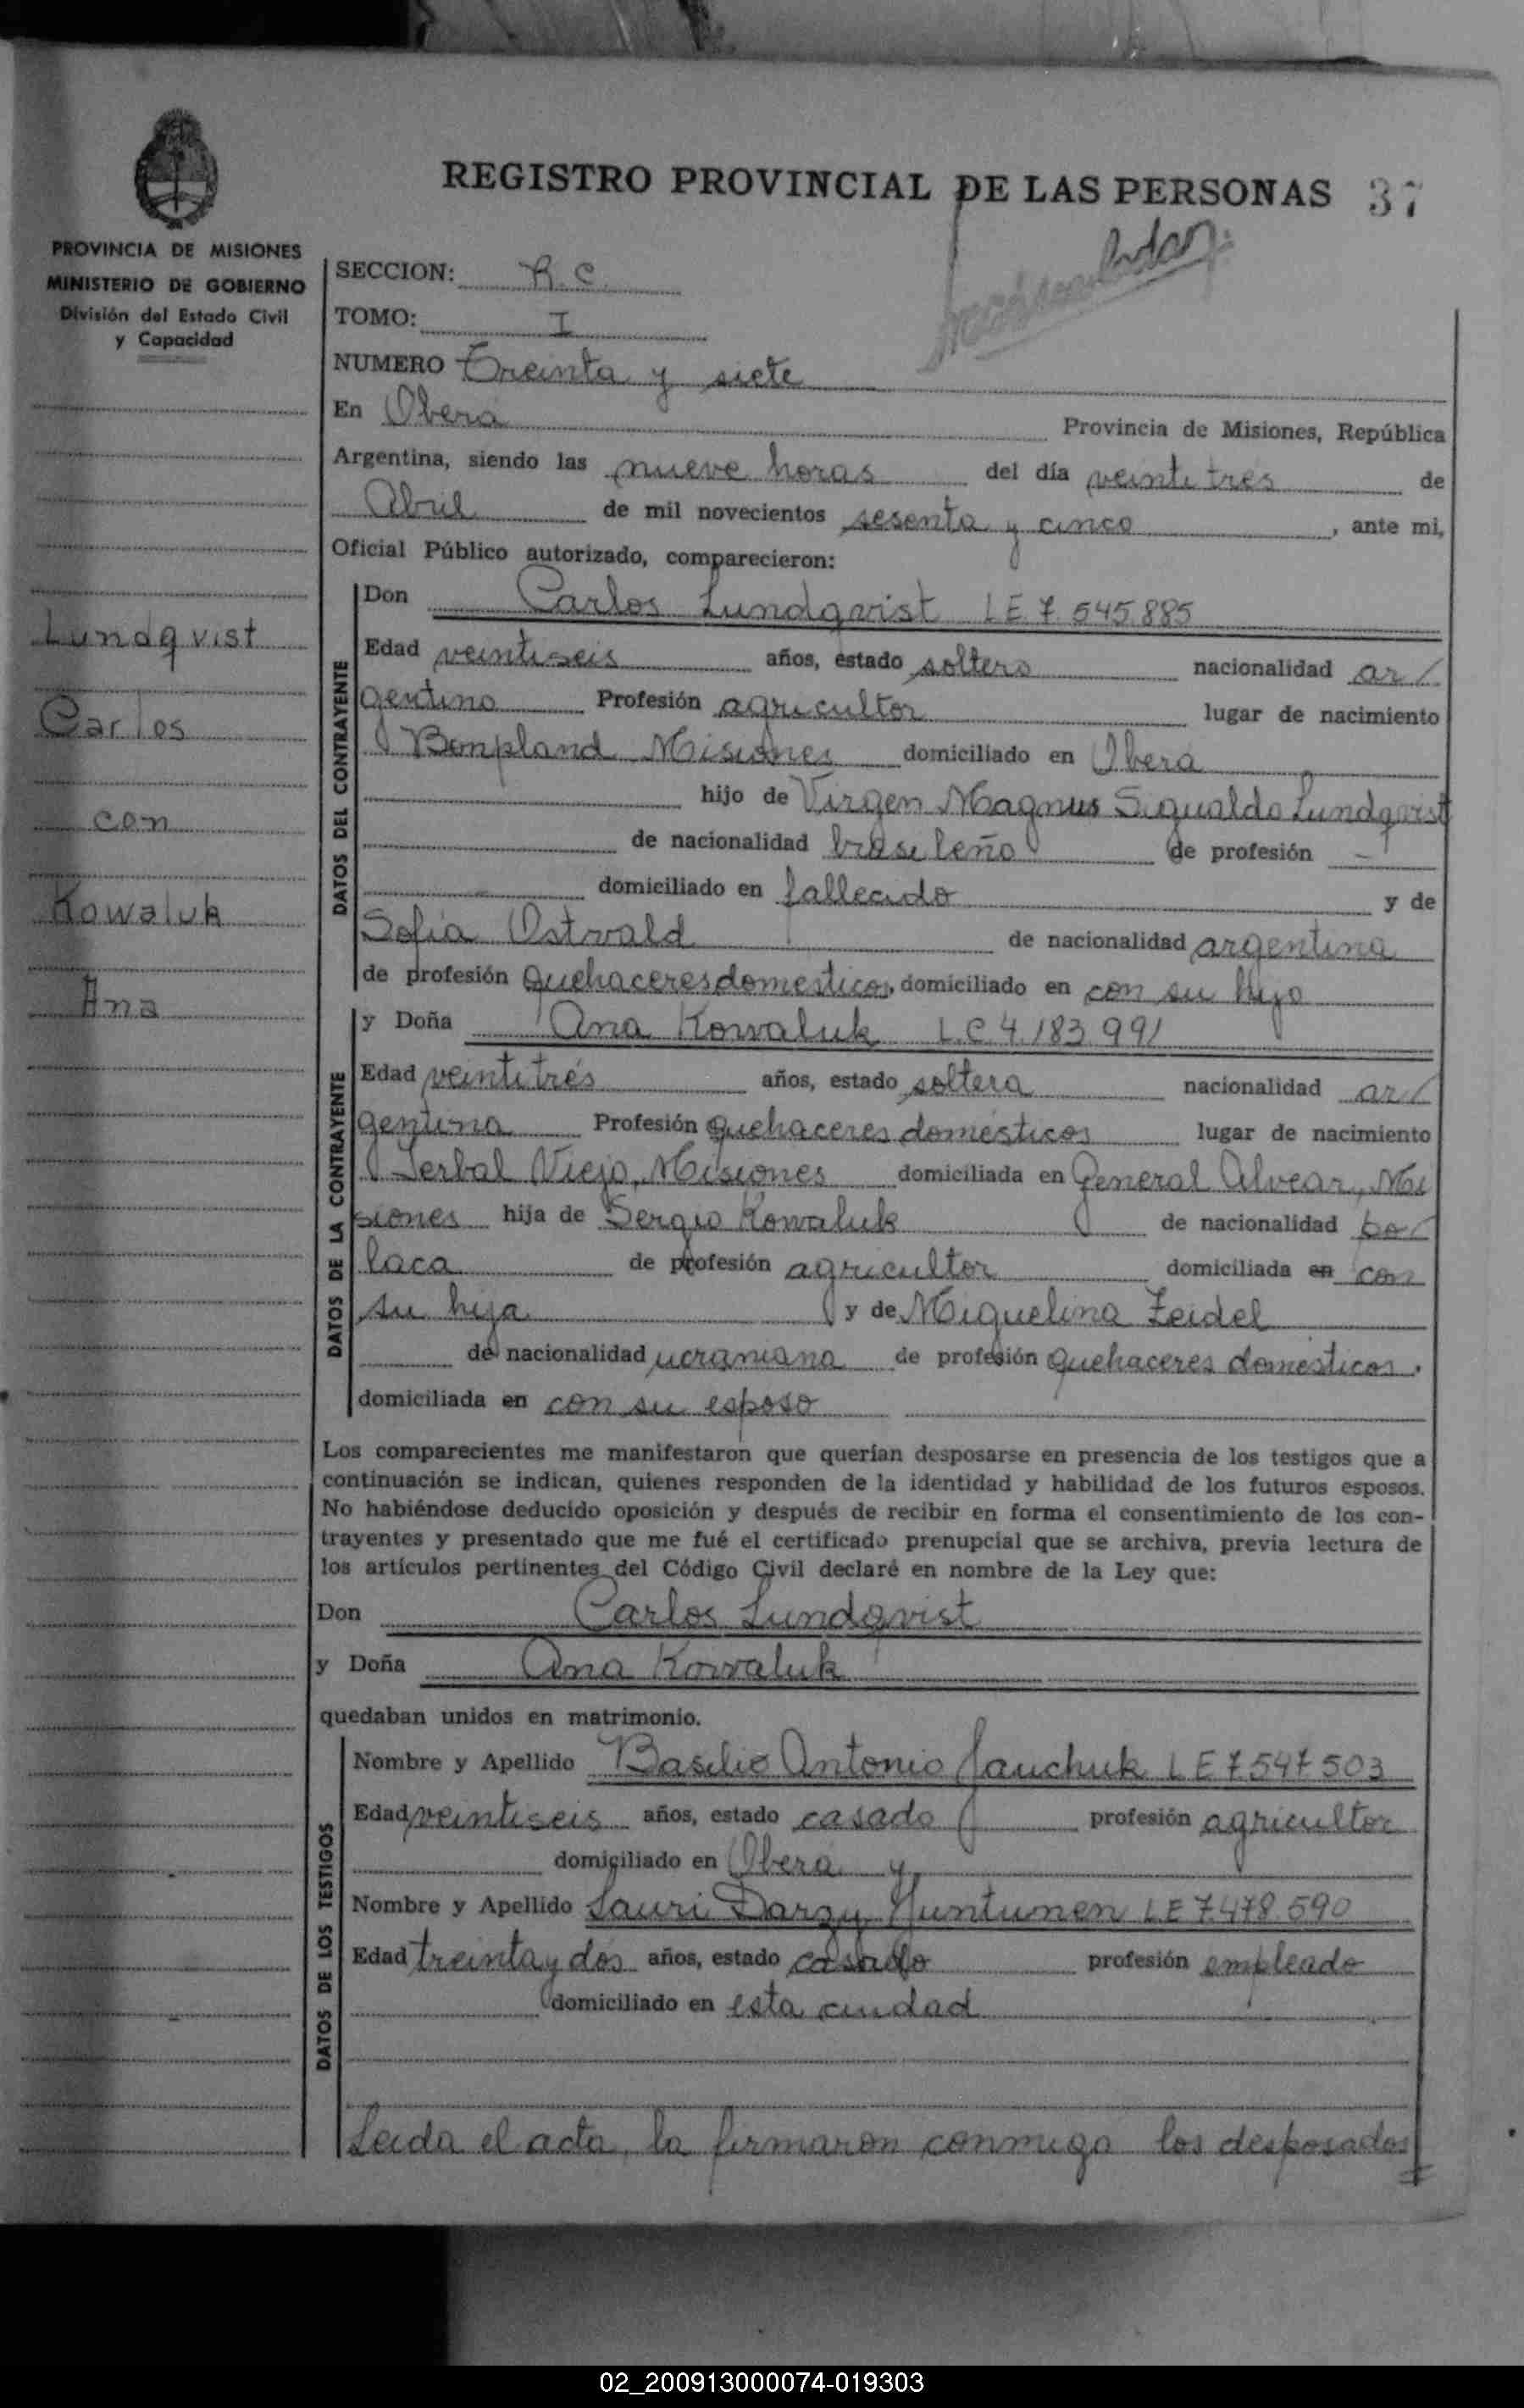 REGISTRO PROVINCIAL DE LAS PERSONAS 37
PROVINCIA DE MISIONES
MINISTERIO DE GOBIERNO
División del Estado Civil
y Capacidad
Lundqvist
Carlos
con
Kowaluk
Ana
SECCION: R.C.
TOMO: I
NUMERO Treinta y siete
En Oberá Provincia de Misiones, República
Argentina, siendo las nueve horas del día veinti tres de
Abril de mil novecientos sesenta y cinco, ante mi,
Oficial Público autorizado, comparecieron:
DATOS DEL CONTRAYENTE
Don Carlos Lundqvist LE 7.545.885
Edad veintiseis años, estado soltero nacionalidad ar/
gentino Profesión agricultor lugar de nacimiento
Bonpland Misiones domiciliado en Oberá
hijo de Virgen Magnus Sigualdo Lundqvist
de nacionalidad brasileño de profesión —
domiciliado en fallecido y de
Sofia Ostwald de nacionalidad argentina
de profesión quehaceres domesticos, domiciliado en con su hijo
DATOS DE LA CONTRAYENTE
y Doña Ana Kowaluk L.C 4.183.991
Edad veintitrés años, estado soltera nacionalidad ar/
gentina Profesión quehaceres domésticos lugar de nacimiento
Yerbal Viejo, Misiones domiciliada en General Alvear, Mi
siones hija de Sergio Kowaluk de nacionalidad po/
laca de profesión agricultor domiciliada en con
su hija y de Miguelina Zeidel
de nacionalidad ucraniana de profesión quehaceres domesticos.
domiciliada en con su esposo
Los comparecientes me manifestaron que querían desposarse en presencia de los testigos que a
continuación se indican, quienes responden de la identidad y habilidad de los futuros esposos.
No habiéndose deducido oposición y después de recibir en forma el consentimiento de los con-
trayentes y presentado que me fué el certificado prenupcial que se archiva, previa lectura de
los artículos pertinentes del Código Civil declaré en nombre de la Ley que:
Don Carlos Lundqvist
y Doña Ana Kowaluk
quedaban unidos en matrimonio.
DATOS DE LOS TESTIGOS
Nombre y Apellido Basilio Antonio Jauchuk LE 7.547.503
Edad veintiseis años, estado casado profesión agricultor
domiciliado en Oberá y
Nombre y Apellido Lauri Darzy Huntunen LE 7.478.590
Edad treinta y dos años, estado casado profesión empleado
domiciliado en esta ciudad
Leida el acta, la firmaron conmigo los desposados
02_200913000074-019303